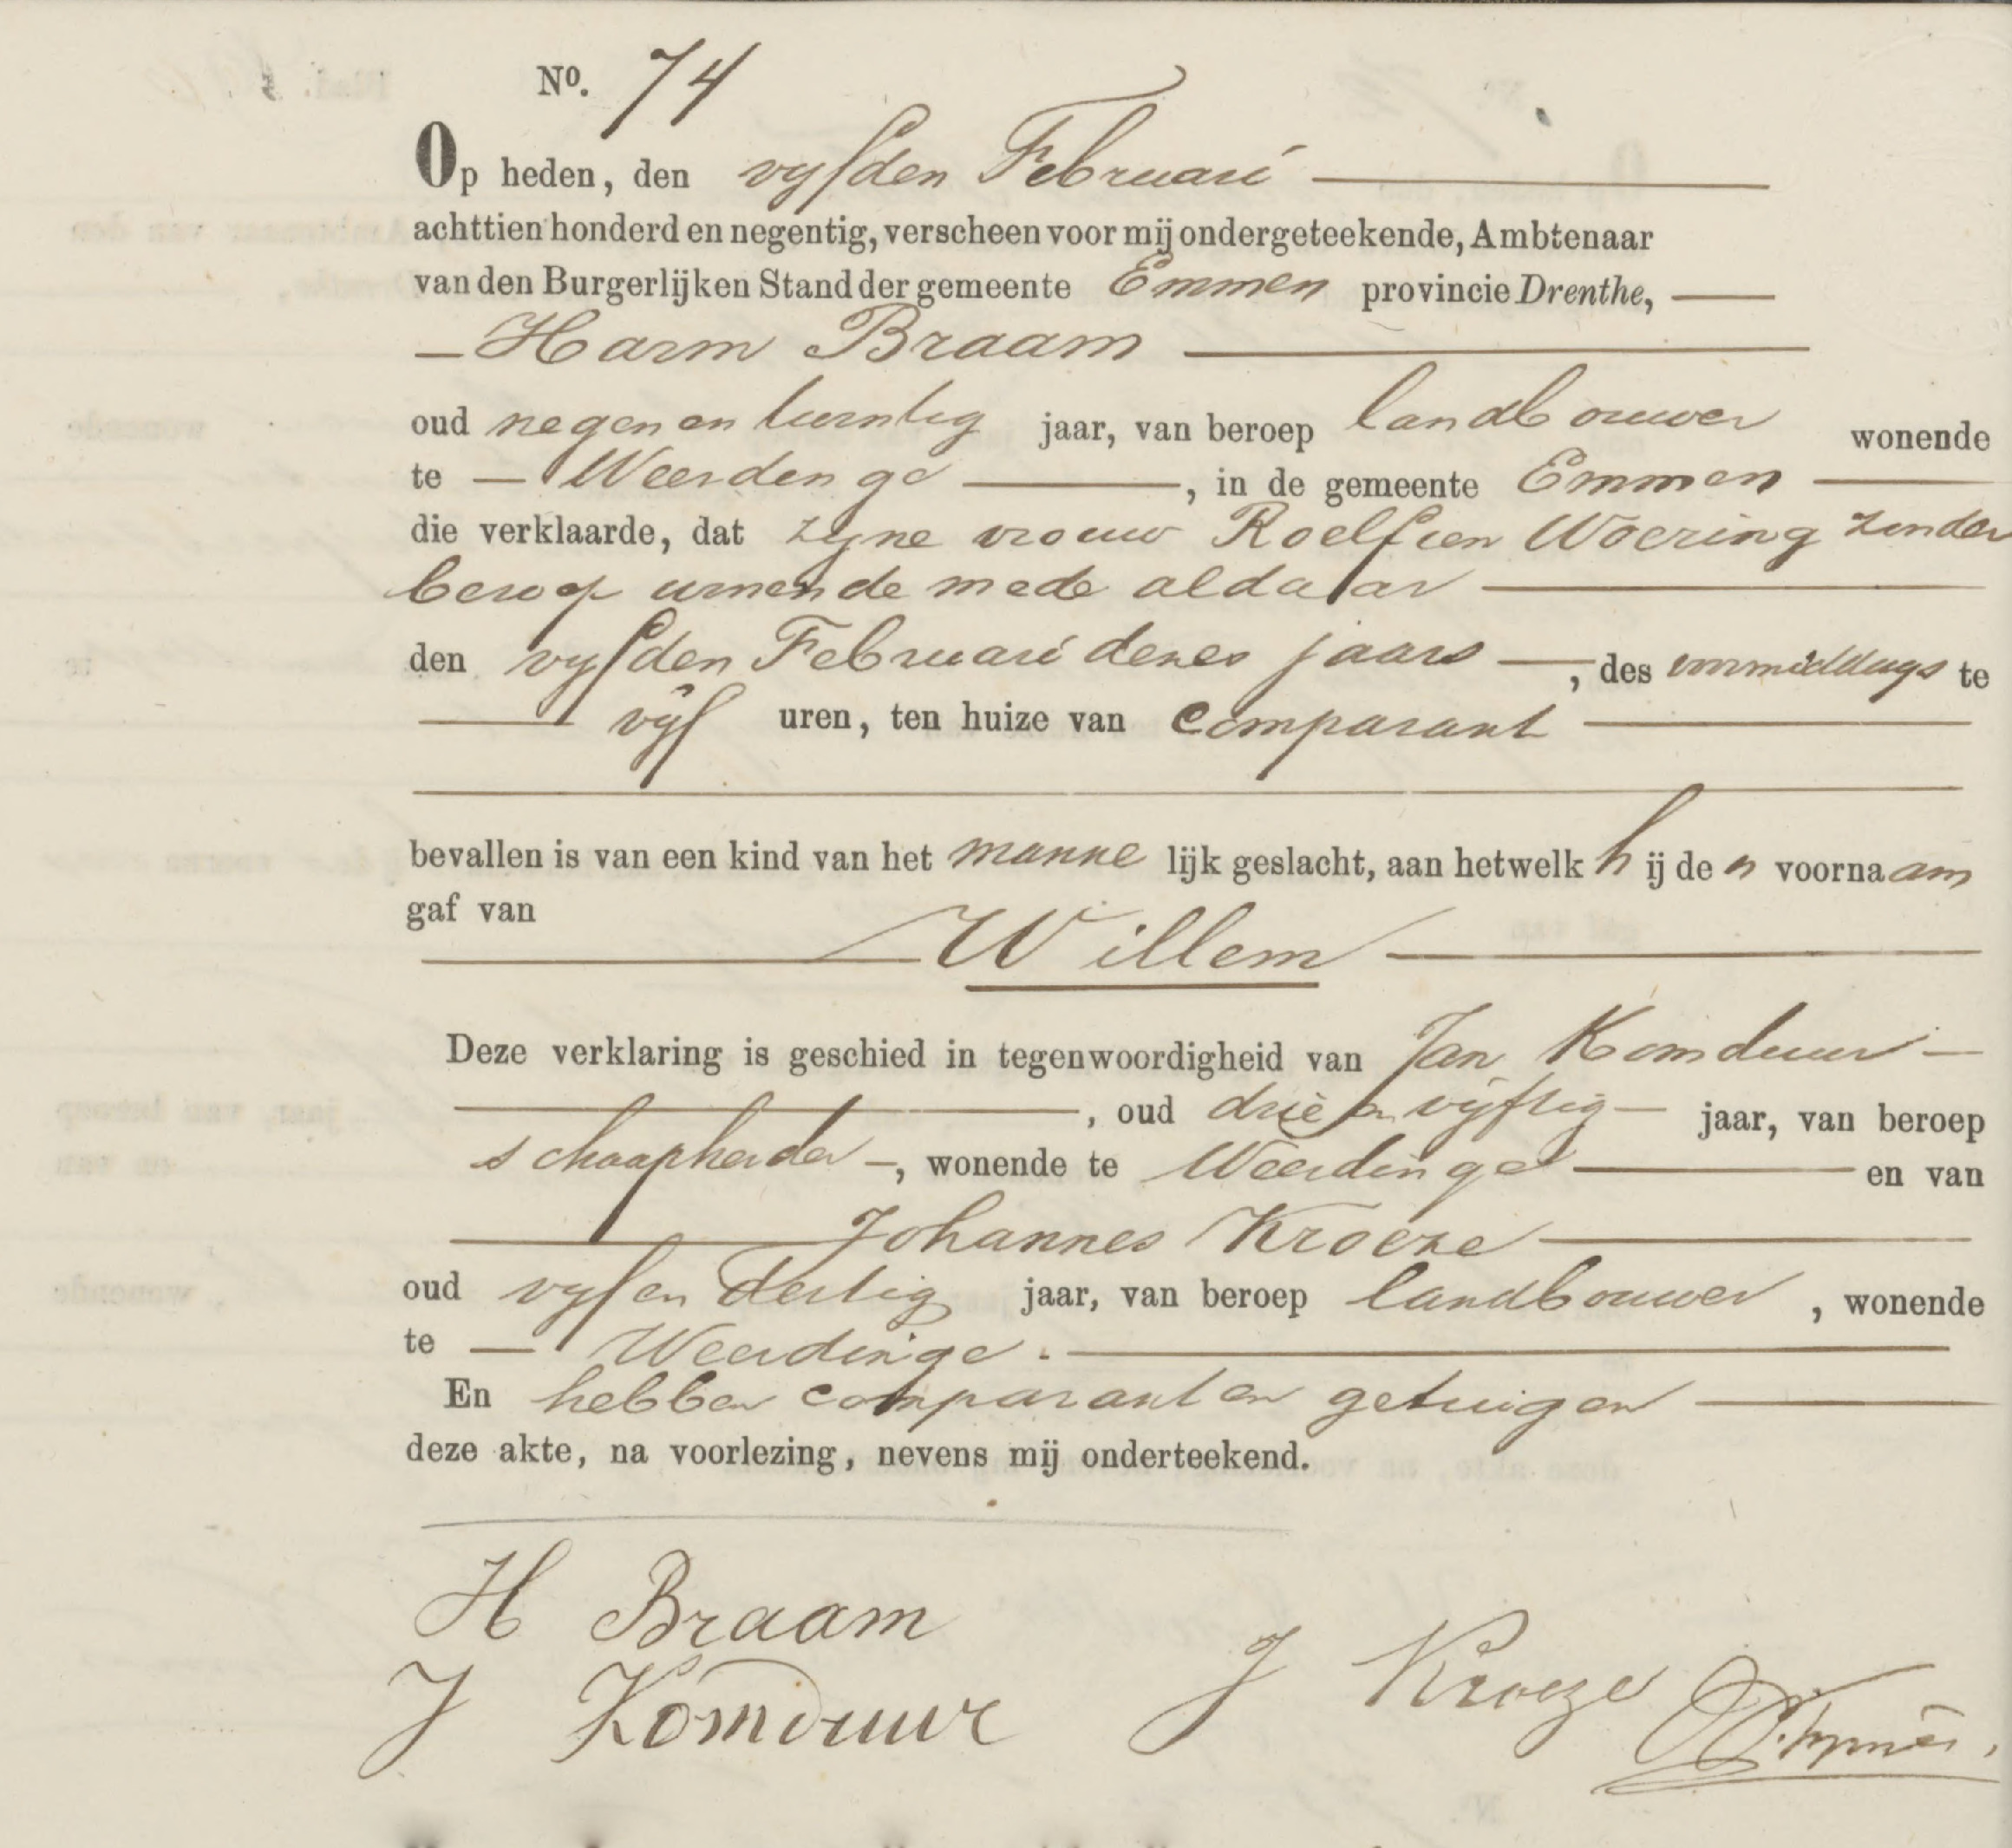 No. 74
Op heden, den vyfden Februari
achttien honderd en negentig, verscheen voor mij ondergeteekende, Ambtenaar
van den Burgerlijken Stand der gemeente Emmen provincie Drenthe,
Harm Braam
oud negen en twintig jaar, van beroep landbouwer wonende
te Weerdinge, in de gemeente Emmen
die verklaarde, dat zyne vrouw Roelfien Woering zonder
beroep wonende mede aldaar
den vyfden Februari dezes jaars, des voormiddags te
vijf uren, ten huize van comparant
bevallen is van een kind van het mannelijk geslacht, aan hetwelk hij den voornaam
gaf van
Willem
Deze verklaring is geschied in tegenwoordigheid van Jan Komduur
, oud drie en vijftig jaar, van beroep
schaapherder, wonende te Weerdinge en van
Johannes Kroeze
oud vyf en dertig jaar, van beroep landbouwer, wonende
te Weerdinge.
En hebben comparant en getuigen
deze akte, na voorlezing, nevens mij onderteekend.
H Braam
J Komduur J Kroeze